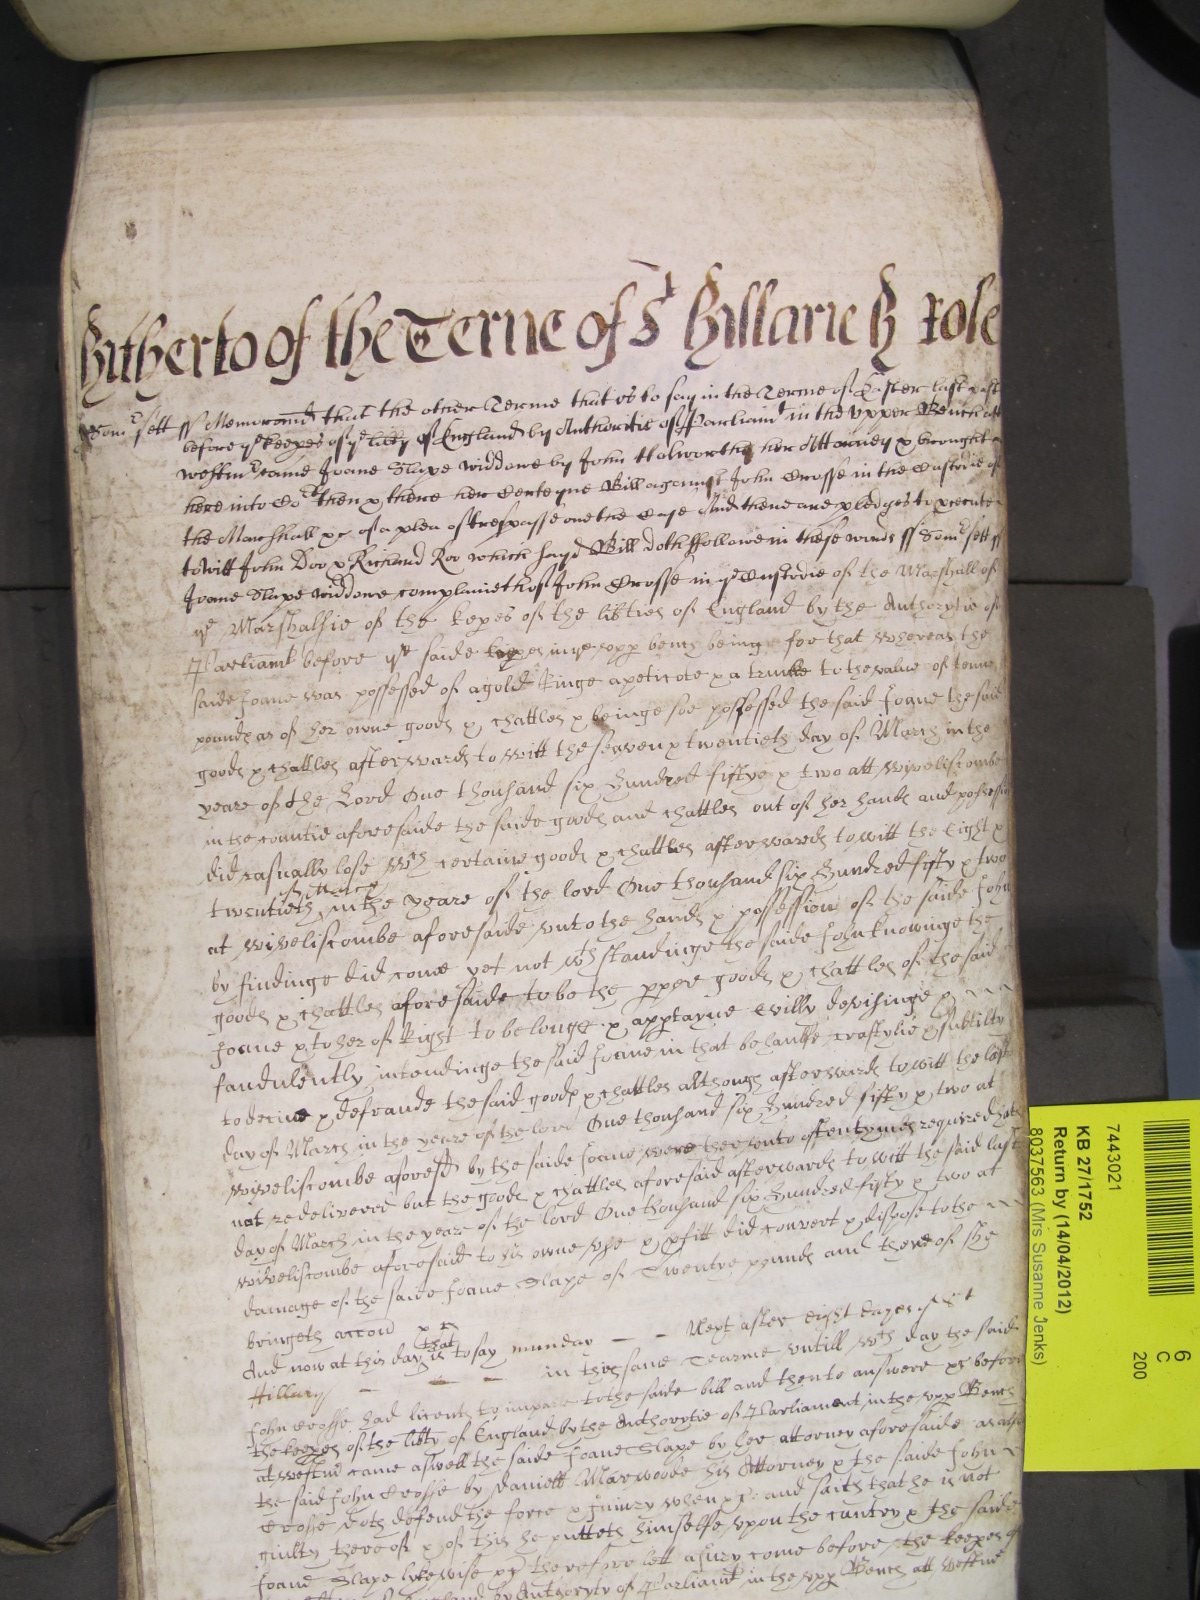 Hitherto of the Terme of St Hillarie by Role
Somrsett ss Memorand that the other Terme that is to say in the Terme of Easter last past
before ye keepes of ye libty of England by Authoritie of Parliamt in the Upper Bench att
Westmr came Joane Slape widdowe by John Holworthy her Attorney & brought
here into Cort then & there her Certeyne Bill against John Crosse in the Custodie of
the Marshall &c of a plea of trespasse one the Case And there are pledges to prosecute
to witt John Doo & Richard Roo which sayd Bill doth followe in these words ss Somrsett ss
Joane Slape widdowe complaineth of John Crosse in ye Custodie of the Marshall of
ye Marshalsie of the kepes of the libties of England by the Authorytie of
Parliamt before ye saide kepes in ye upp bench being for that whereas the
saide Joane was possessed of a gold Ringe a peticote & a trunke to the value of tenne
pounds as of her owne goods & chattles & beinge soe possessed the said Joane the said
goods & chattles afterwards to witt the seaven & twentieth day of March in the
yeare of the Lord One thousand six hundred fiftye & two att Wiveliscombe
in the countie aforesaide the saide goods and chattles out of her hands and possession
did casually lose wch certaine goods & chattles afterwards to witt the Eight &
twentieth of March in the yeare of the lord One thousand six hundred fifty & two
at Wiveliscombe aforesaide unto the hands & possession of the saide John
by findinge did come yet not wthstandinge the saide John knowinge the
goods & chattles aforesaide to be the pper goods & chattles of the said
Joane & to her of Right to belonge & appertayne Willy devisinge &
faudulently intendinge the said Joane in that behaulfe craftylie & subtilty
to decive & defraude the said goods & chattles although afterwards to witt the last
day of March in the yeare of the lord One thousand six hundred fifty & two at
Wiveliscombe aforesd by the saide Joane were thereunto oftentymes required hath
not redelivered but the goods & chattles aforesaid afterwards to witt the said last
day of March in the year of the lord One thousand six hundred fifty & two at
Wiveliscombe aforesaid to his owne use & pfitt did convert & dispose to the
damage of the saide Joane Slape of Twentye pounds and thereof she
bringeth accon &c
And now at this day that is to say munday — — Next after eight dayes of St
Hillary — — — in this same Tearme untill wch day the said
John Crosse had licents to impare to the saide bill and then to answere &c before
the keepes of the libty of England by the Authorytie of Parliament in the upp Bench
at Westmr came aswell the saide Joane Slape by her attorney aforesaide as also
the said John Crosse by Daniell Marwoode his Attorney & the saide John
Crosse doth defend the force & Jniury when &c and saith that he is not
guilty thereof & of this he putteth himselfe upon the cuntry & the saide
Joane Slape lykewise &c therefore lett a Jury come before the keepes of
England by Authoryty of Parliamt in the upp Bench att Westmr
7443021
KB 27/1752
Return by (14/04/2012)
8037563 (Mrs Susanne Jenks)
6
C
200